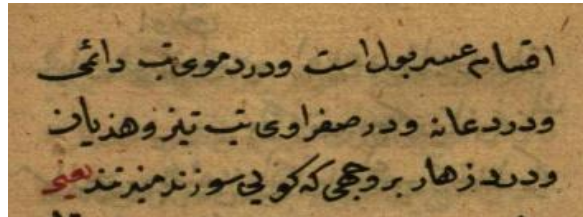 اقسام عسر بول است و در دموی تب دائمی
و درد عانه و در صفراوی تب تیز و هذیان
و درد زهار بر وجهی که کویی سوزن میزنند یعنی